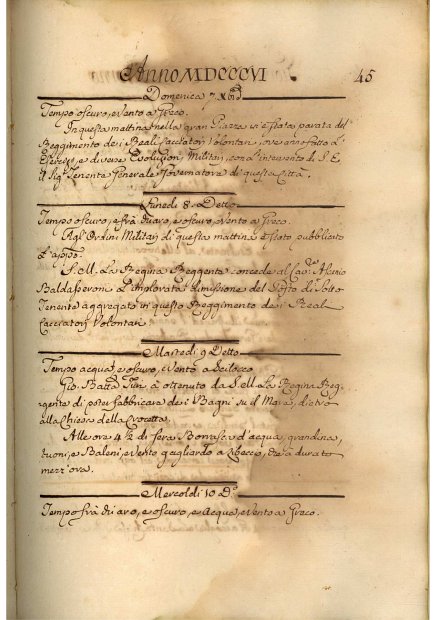 Anno MDCCCVI
45
Domenica 7
Tempo oscuro, e Vento a Greco.
In questa mattina nella gran Piazza vi è stata parata del
Reggimento dei Reali Cacciatori Volontari, ove anno fatto l'
Esercizio, e diverse Evoluzioni Militari, con l'intervento di S. E.
il Sig.e Tenente Generale Governatore di questa Città.
Lunedi 8 Detto
Tempo oscuro, e frà chiaro, e oscuro, e Vento a Greco.
Agl'Ordini Militari di questa mattina è stato pubblicato
l'appo:
S. M. La Regina Reggente concede al Alessio
Baldasseroni l'implorata dimissione del Posto di Sotto
Tenente aggregato in questo Reggimento dei Reali
Cacciatori Volontari.
Martedi 9 Detto
Tempo acqua, e oscuro, e Vento a Scilocco
Gio. Batta à ottenuto da S. M. La Regina Reg-
gente di poter fabbricare dei Bagni su il Mare, dietro
alla Chiesa della Crocetta.
Alle ore 4 1/2 di sera Borrasca d'acqua, grandina,
tuoni, e Baleni, e Vento gagliardo a Libeccio, che à durato
mezz'ora.
Mercoldi 10 D.o
Tempo frà chiaro, e oscuro, e Acqua, e Vento a Greco.